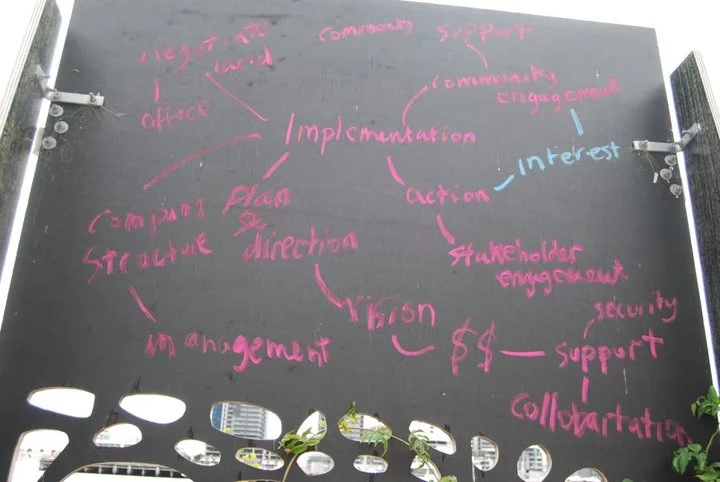 negotiate
community
support
office
community
engagement
Implementation
interest
action
Company
Structure
Plan
&
direction
Stakeholder
engagement
vision
management
$$
support
security
Collobartation